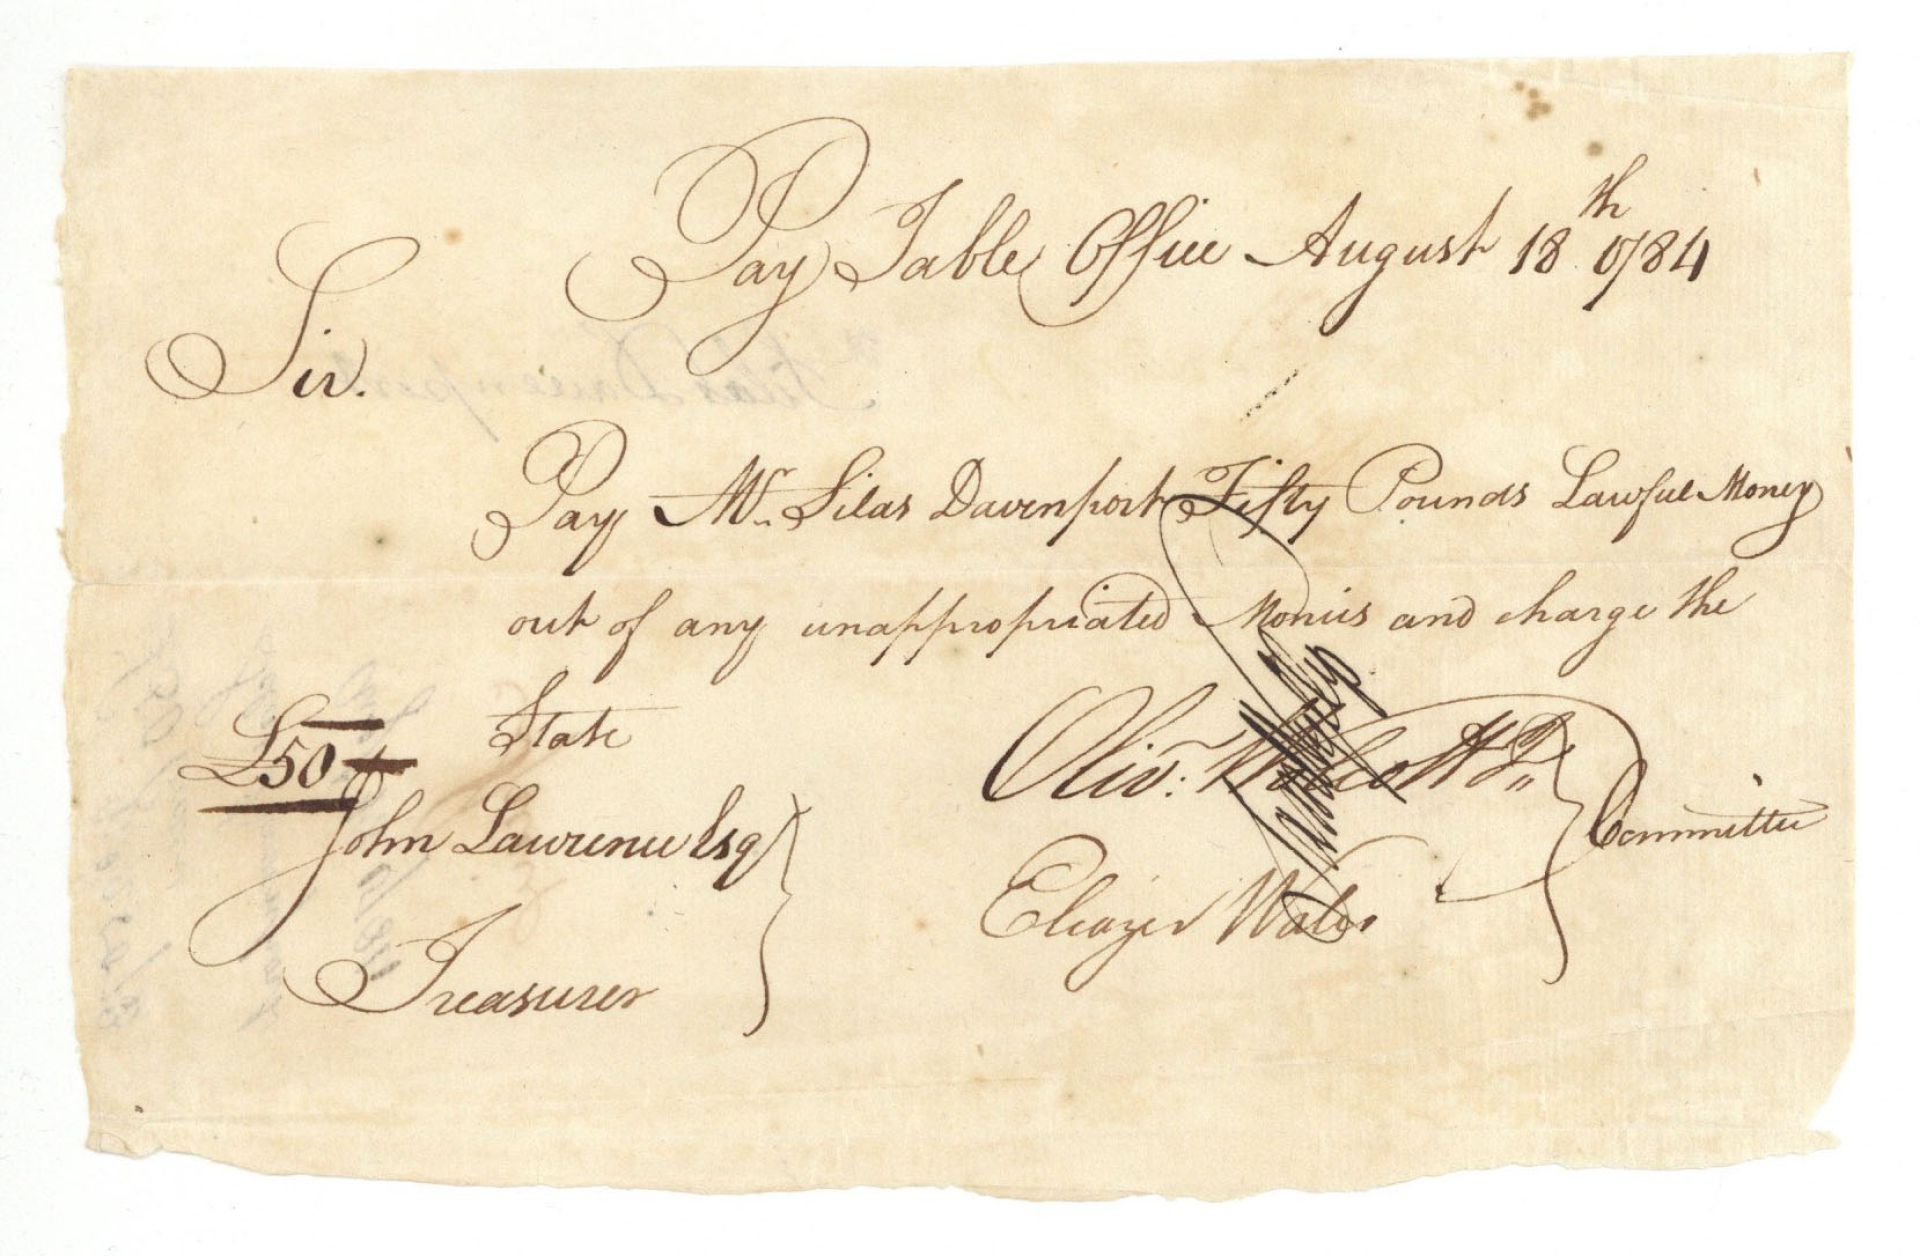 Pay Table Office August 18th 1784
Sir.
Pay Mr. Silas Davenport Fifty Pounds Lawful Money
out of any unappropriated Monies and charge the
State
£50
Olivr. Wolcott Jr.
Eleazer Wales
Committee
John Lawrence Esqr
Treasurer
Silas Davenport